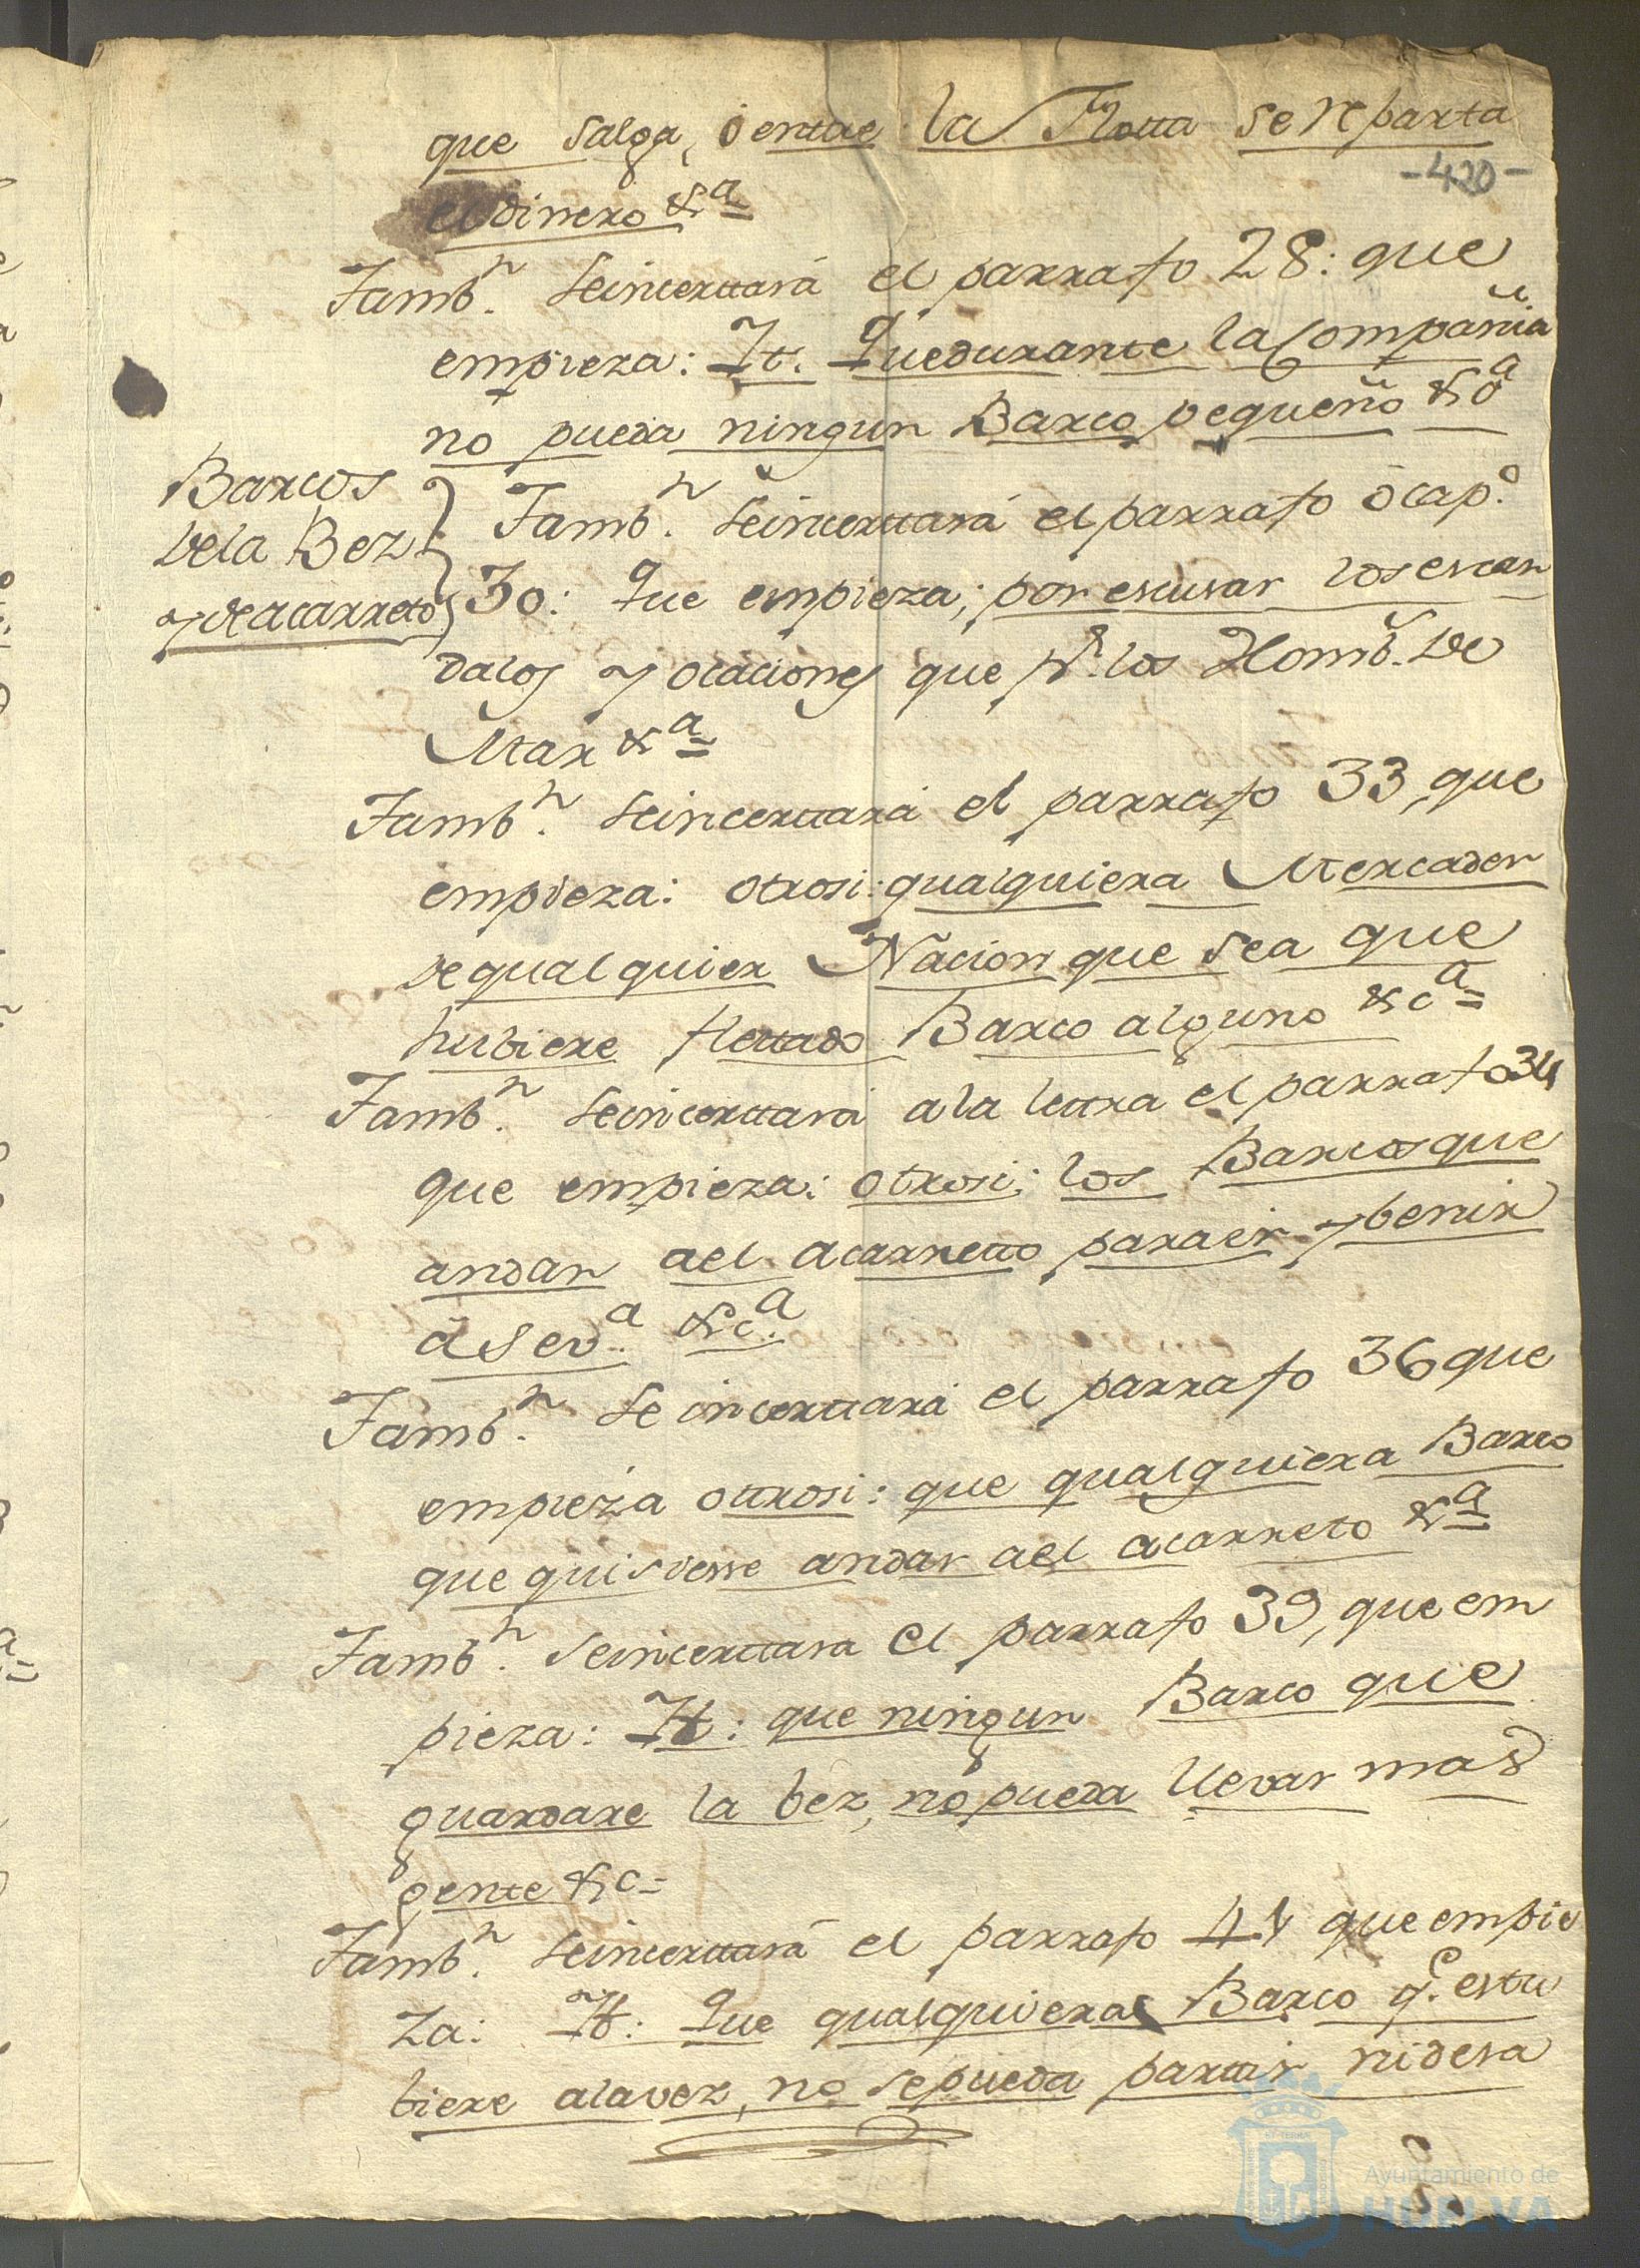 que salga, ó entrae la Flotta se reparta
-420-
el dinero &a
Tambn. se incerttará el parrafo 28: que
empieza: It. Que durante la Compañia
no pueda ningun Barco pequeño &a
Barcos
de la Bez
y de acarreto
Tambn. se incerttará el parrafo ó capo.
30: Que empieza; por escusar los escan
dalos y ocaciones que pr. los Homb. de
Mar &a
Tambn. se incerttará el parrafo 33, que
empieza: otrosi: qualquiera Mercader
de qualquier Nacion que sea que
hubiere flettado Barco alguno &ca
Tambn. se incerttará a la lettra el parrafo 34
que empieza: otrosi: los Barcos que
andan ael acarretto para ir y benir
á Seva. &ca.
Tambn. se incerttará el parrafo 36 que
empieza ottrosi: que qualquiera Barco
que quisiesse andar ael acarreto &a
Tambn. se incerttara el parrafo 39, que em
pieza: It: que ningun Barco que
guardare la bez, no pueda llevar mas
gente &c
Tambn. se incerttará el parrafo 41 que empie
za: It: Que qualquiera Barco qe. estu
biere a la vez, no se pueda parttir ni desa
Ayuntamiento de
HUELVA